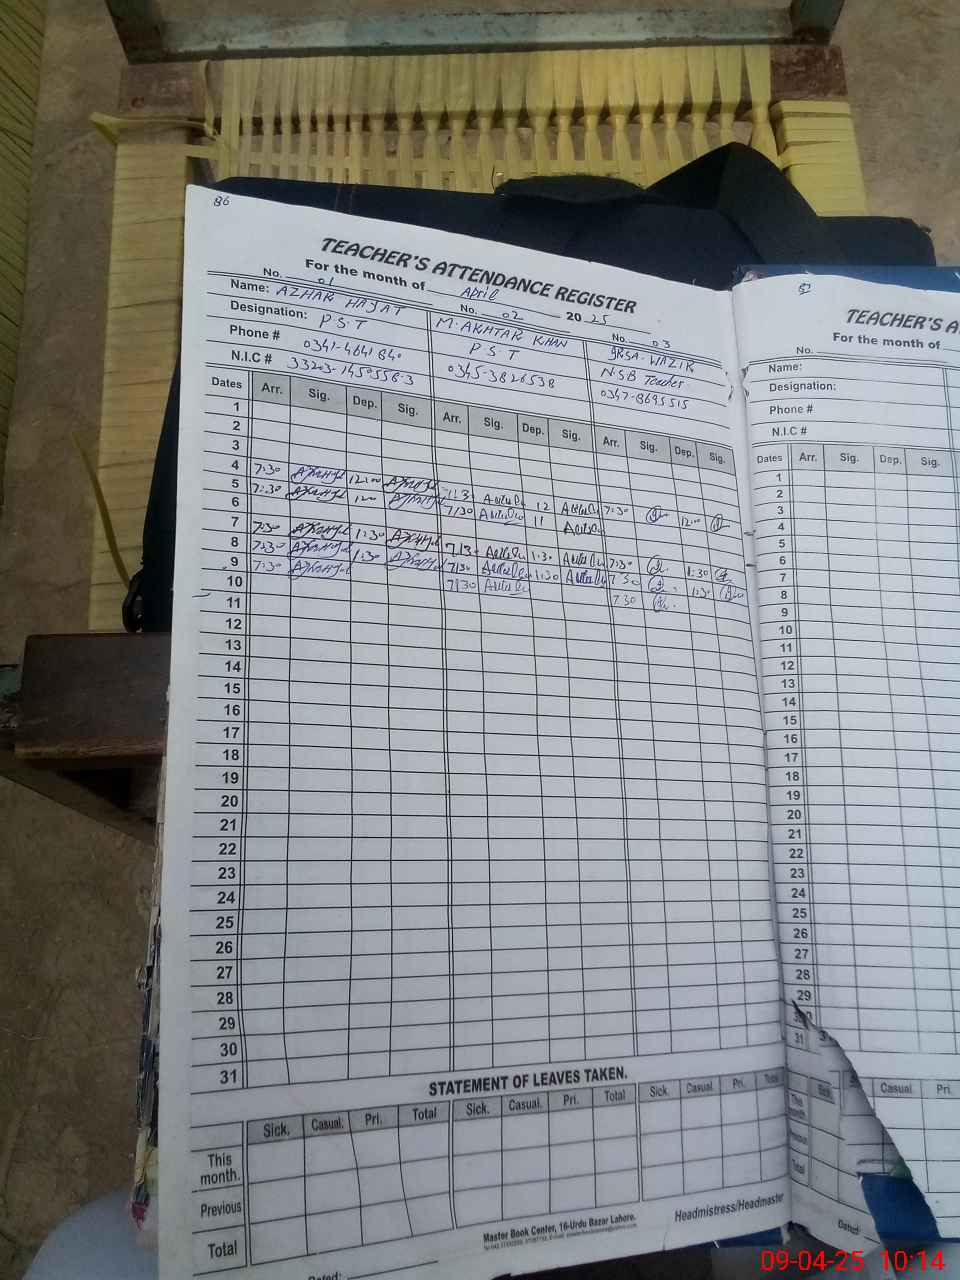 86
TEACHER'S ATTENDANCE REGISTER
For the month of April 2025
No. 01 No. 02 No. 03
Name: AZHAR HAYAT M. AKHTAR KHAN WAZIR
Designation: P.S.T P.S.T N.S.B Teacher
Phone # 0341-4641840 0345-3826538 0347-8695515
N.I.C # 33203-1450558-3
Dates Arr. Sig. Dep. Sig. Arr. Sig. Dep. Sig. Arr. Sig. Dep. Sig.
1
2
3
4 7:30 12:00 12 7:30 12:00
5 7:30 7/30 11
6
7 7:30 1:30 7/30 1:30 7:30 1:30
8 7:30 1:30 7/30 1:30 7:30 1:30
9 7:30 7/30 7:30
10
11
12
13
14
15
16
17
18
19
20
21
22
23
24
25
26
27
28
29
30
31
STATEMENT OF LEAVES TAKEN.
Sick. Casual. Pri. Total Sick. Casual. Pri. Total Sick. Casual. Pri. Total
This month.
Previous
Total
Master Book Center, 16-Urdu Bazar Lahore.
Headmistress/Headmaster
Dated:
TEACHER'S A
For the month of
No.
Name:
Designation:
Phone #
N.I.C #
Dates Arr. Sig. Dep. Sig.
1
2
3
4
5
6
7
8
9
10
11
12
13
14
15
16
17
18
19
20
21
22
23
24
25
26
27
28
29
30
31
Sick. Casual. Pri.
This month
Total
Dated:
09-04-25 10:14